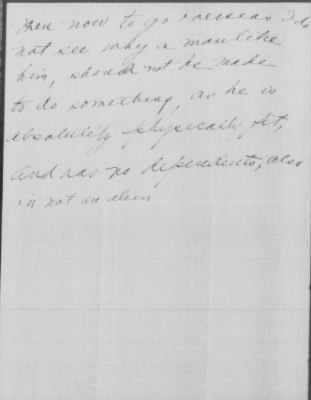 men now to go overseas I do
not see why a man like
him, should not be made
to do something, as he is
absolutely physically fit,
and has no dependents, also
is not an alien